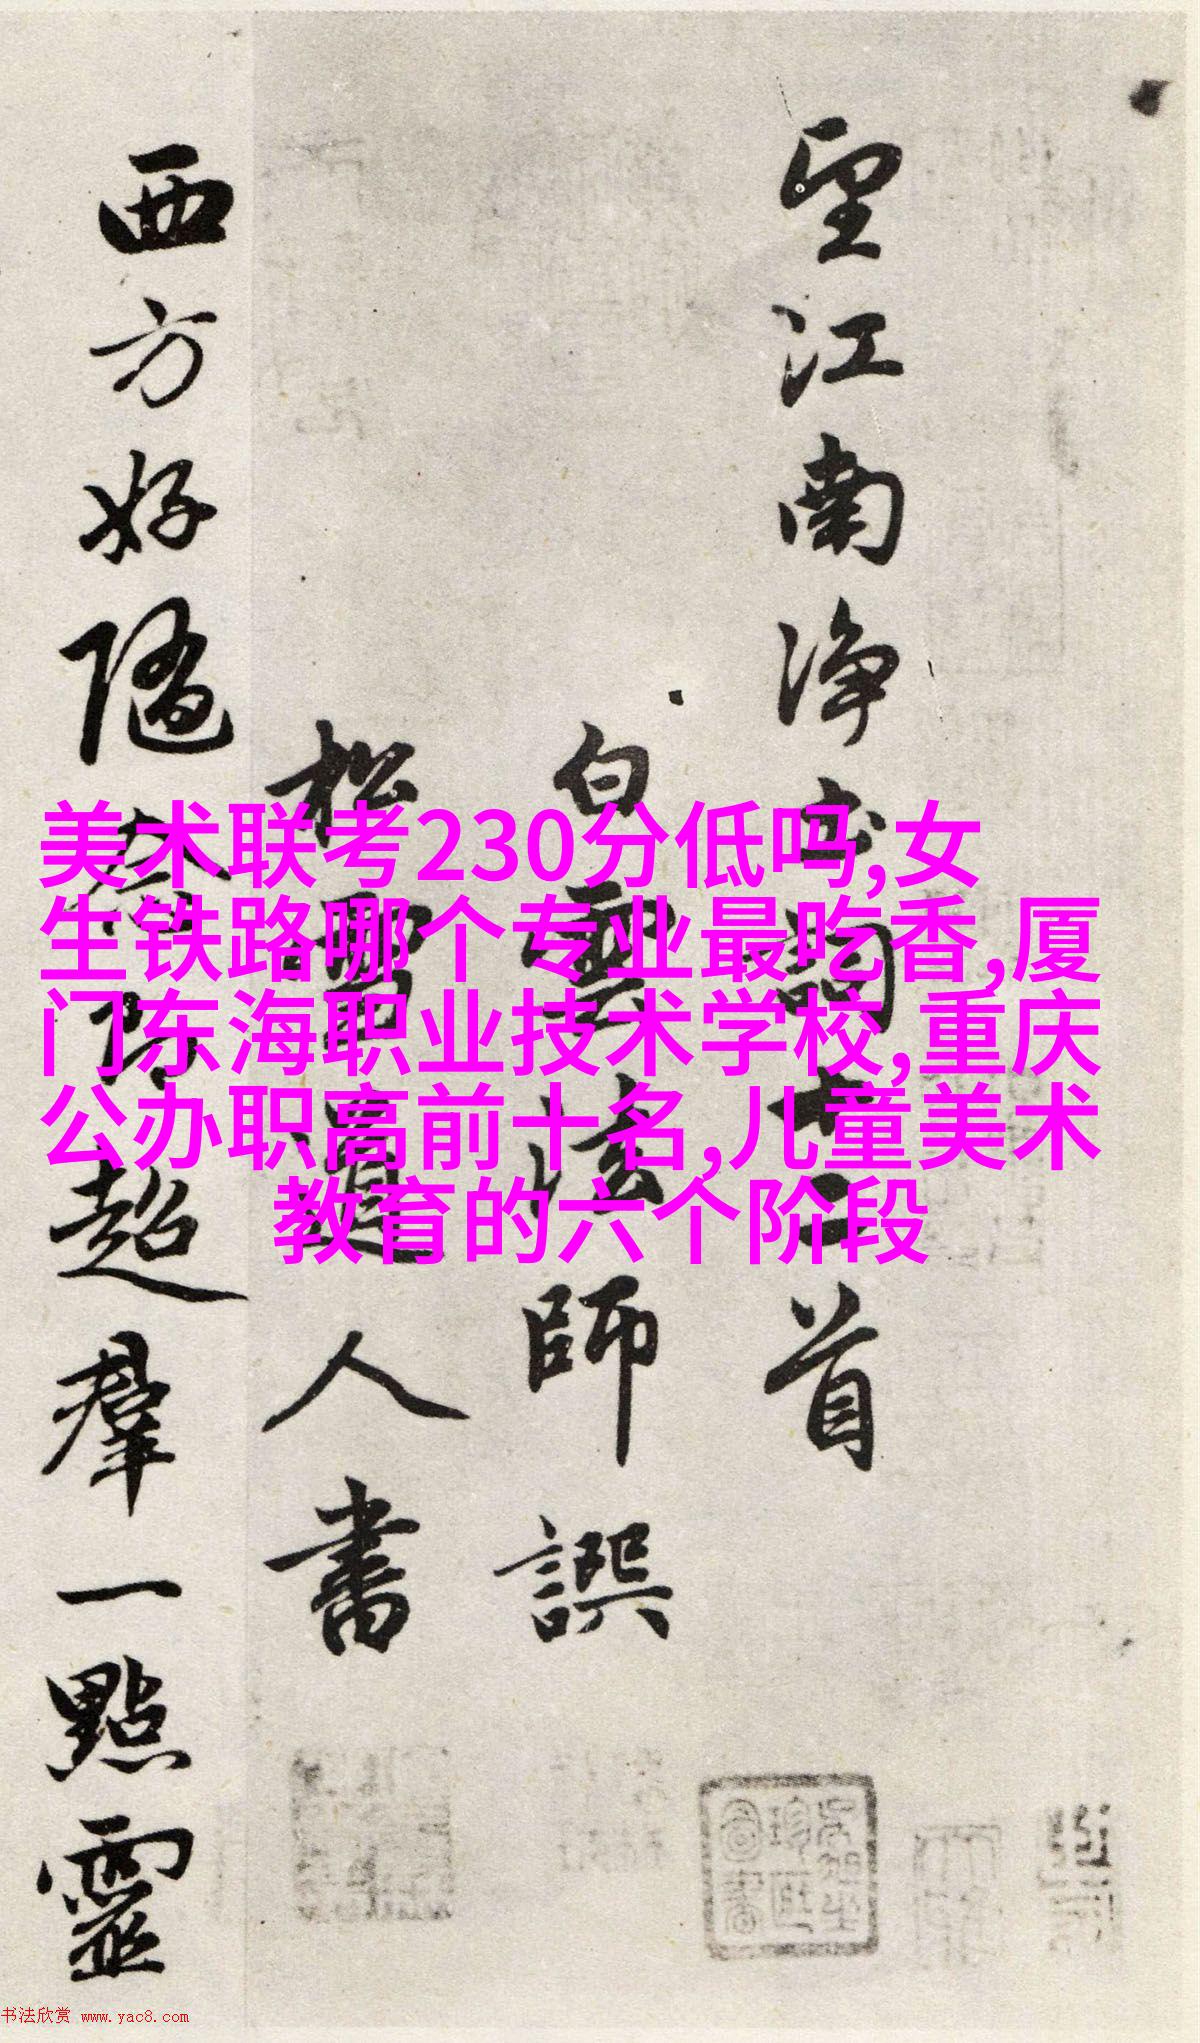 美术联考230分低吗,女
生铁路哪个专业最吃香,厦
门东海职业技术学校,重庆
公办职高前十名,儿童美术
教育的六个阶段
望江南净土詞十二首
白雲法師譔
松雪道人書
西方好隨念即超羣一點靈
书法欣赏 www.yac8.com